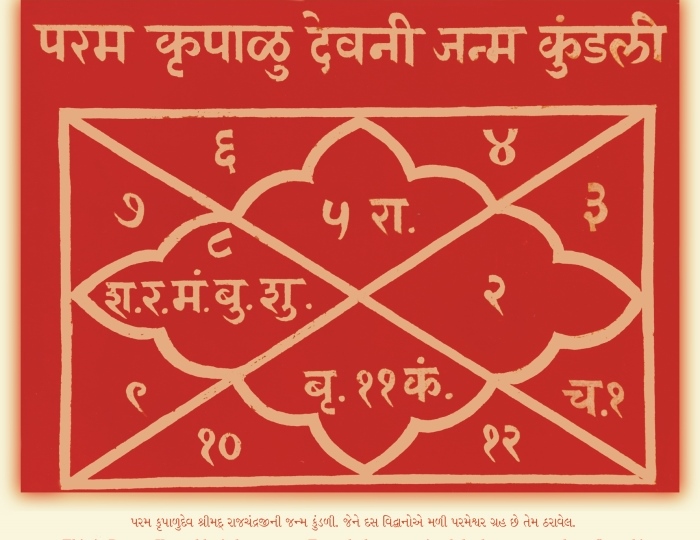 परम कृपाळु देवनी जन्म कुंडली
६ ४
७ ५ रा. ३
८
श.र.मं.बु.शु. २
९ बृ. ११ कं. च.१
१० १२
પરમ કૃપાળુદેવ શ્રીમદ્ રાજચંદ્રજીની જન્મ કુંડળી. જેને દસ વિદ્વાનોએ મળી પરમેશ્વર ગ્રહ છે તેમ ઠરાવેલ.